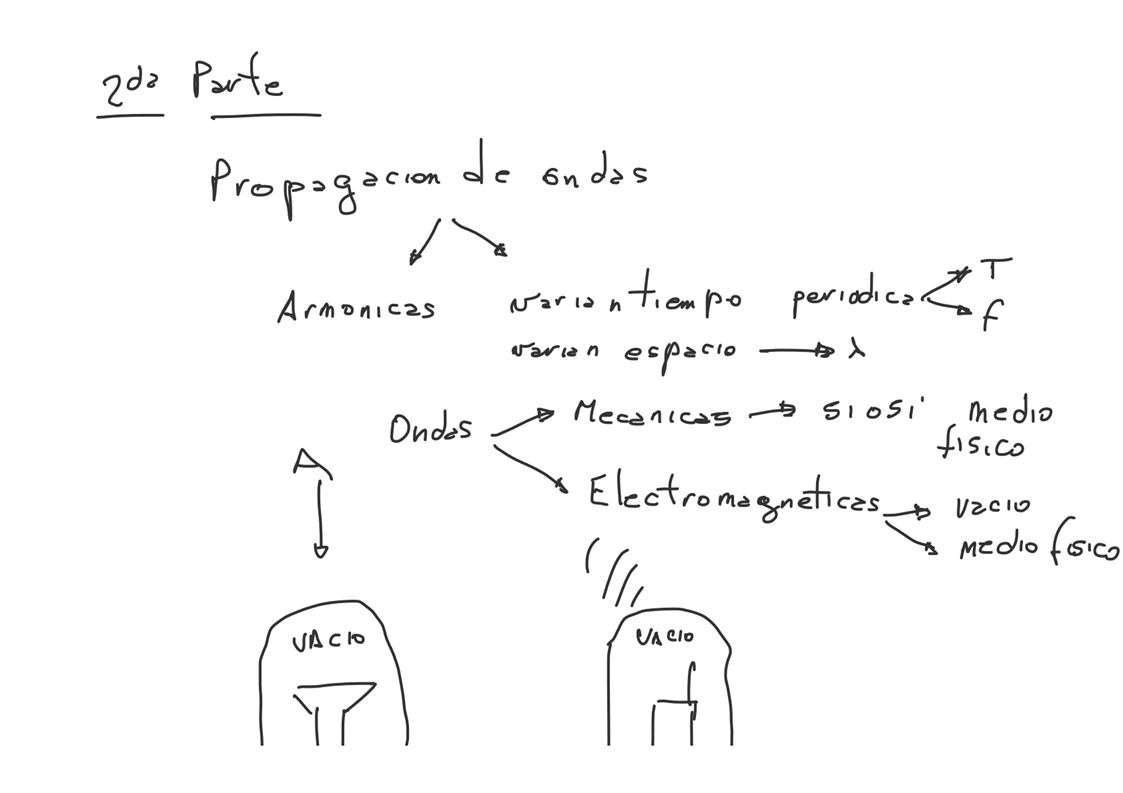 2da Parte
Propagacion de ondas
Armonicas varian tiempo periodica T
f
varian espacio λ
Ondas Mecanicas si o si medio
fisico
Electromagneticas vacio
medio fisico
VACIO VACIO